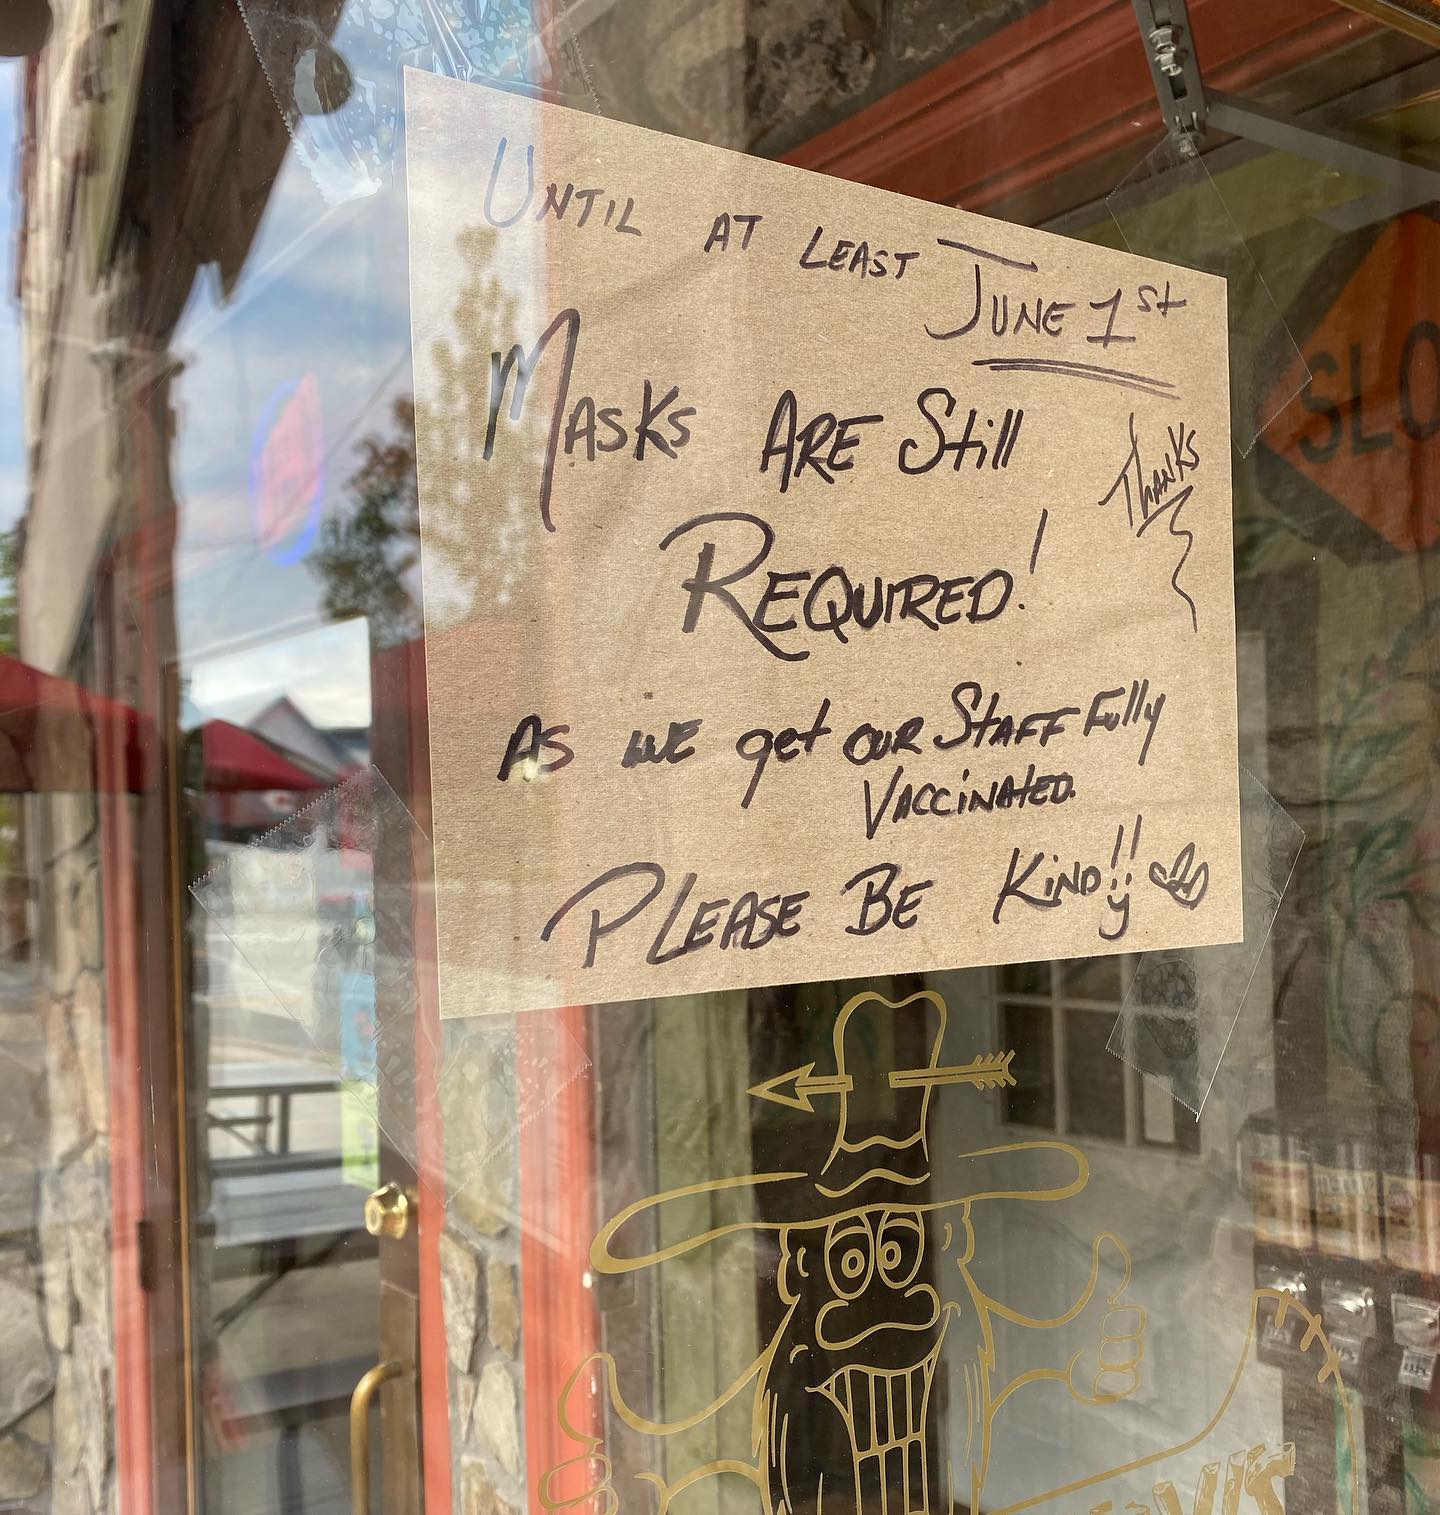 UNTIL AT LEAST JUNE 1st
MASKS ARE Still
THANKS
REQUIRED!
AS WE get OUR STAFF Fully
VACCINATED.
PLEASE BE KIND!!
SLO